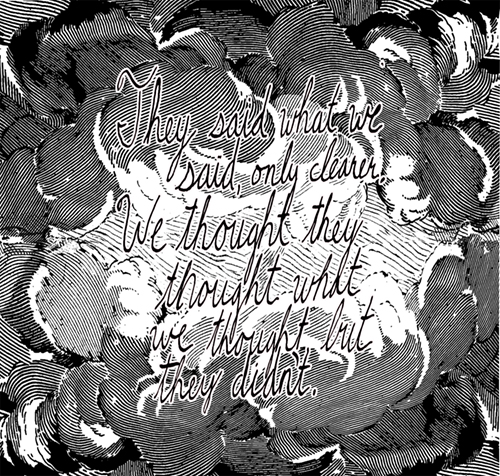 They said what we
said, only clearer.
We thought they
thought what
we thought but
they didnt.